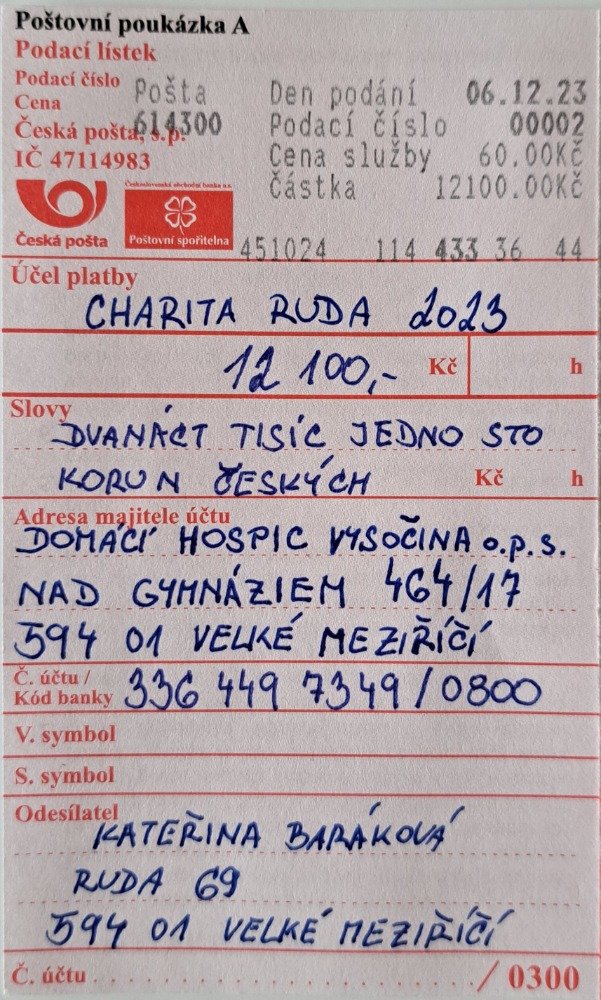 Poštovní poukázka A
Podací lístek
Podací číslo
Cena
Česká pošta, s.p.
IČ 47114983
Pošta Den podání 06.12.23
614300 Podací číslo 00002
Cena služby 60.00Kč
Částka 12100.00Kč
Československá obchodní banka a.s.
Česká pošta Poštovní spořitelna
451024 114 433 36 44
Účel platby
CHARITA RUDA 2023
12 100,- Kč h
Slovy
DVANÁCT TISÍC JEDNO STO
KORUN ČESKÝCH Kč h
Adresa majitele účtu
DOMÁCÍ HOSPIC VYSOČINA o.p.s.
NAD GYMNÁZIEM 464/17
594 01 VELKÉ MEZIŘÍČÍ
Č. účtu /
Kód banky 336 449 7349/0800
V. symbol
S. symbol
Odesílatel
KATEŘINA BARÁKOVÁ
RUDA 69
594 01 VELKÉ MEZIŘÍČÍ
Č. účtu / 0300